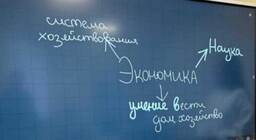 система
хозяйствования
Наука
Экономика
умение вести
дом.хозяйство